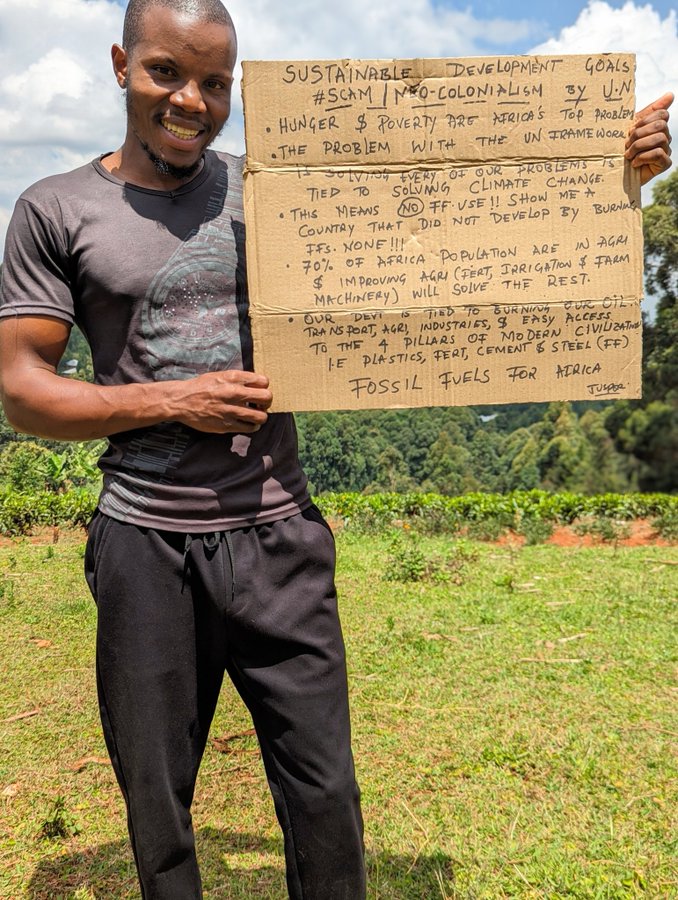 SUSTAINABLE DEVELOPMENT GOALS
#SCAM / NEO-COLONIALISM BY U.N
• HUNGER & POVERTY ARE AFRICA'S TOP PROBLEM
• THE PROBLEM WITH THE UN FRAMEWORK
IS SOLVING EVERY OF OUR PROBLEMS IS
TIED TO SOLVING CLIMATE CHANGE.
• THIS MEANS NO FF USE!! SHOW ME A
COUNTRY THAT DID NOT DEVELOP BY BURNING
FFs. NONE!!!
• 70% OF AFRICA POPULATION ARE IN AGRI
& IMPROVING AGRI (FERT, IRRIGATION & FARM
MACHINERY) WILL SOLVE THE REST.
• OUR DEVT IS TIED TO BURNING OUR OIL.
TRANSPORT, AGRI, INDUSTRIES, & EASY ACCESS
TO THE 4 PILLARS OF MODERN CIVILIZATION
I.E PLASTICS, FERT, CEMENT & STEEL (FF)
FOSSIL FUELS FOR AFRICA
JUSPER